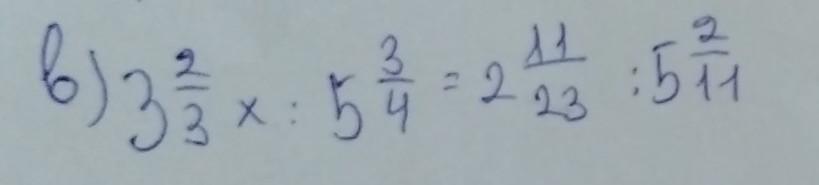 в) 3 2/3 x : 5 3/4 = 2 11/23 : 5 2/11